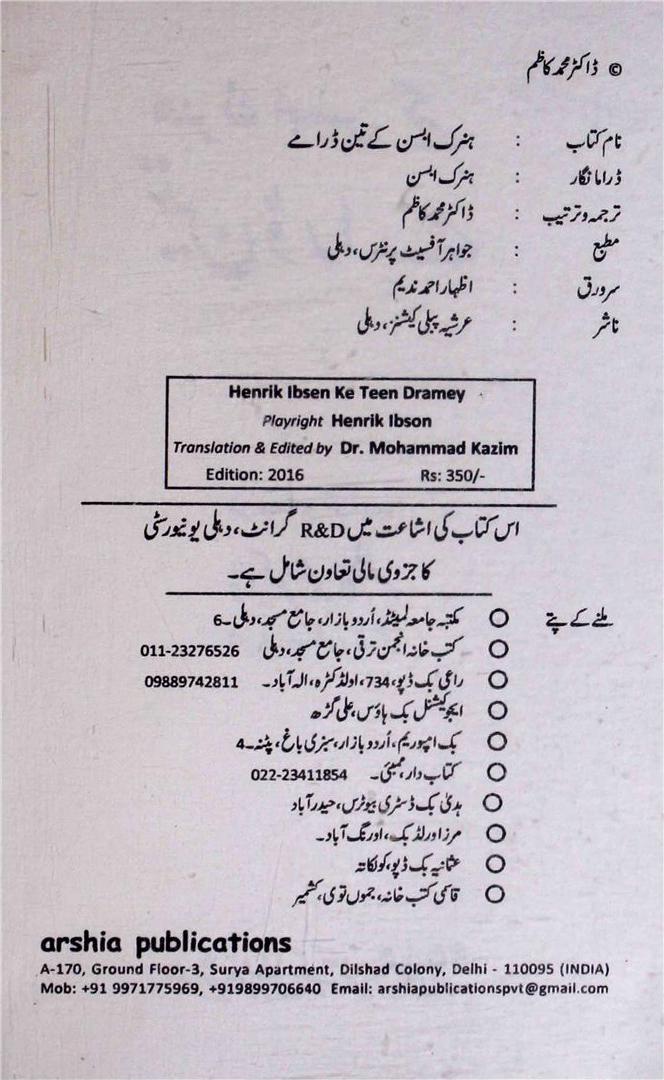 © ڈاکٹر محمد کاظم
نام کتاب : ہنرک ابسن کے تین ڈرامے
ڈراما نگار : ہنرک ابسن
ترجمہ و ترتیب : ڈاکٹر محمد کاظم
مطبع : جواہر آفسیٹ پرنٹرس، دہلی
سرورق : اظہار احمد ندیم
ناشر : عرشیہ پبلی کیشنز، دہلی
Henrik Ibsen Ke Teen Dramey
Playright Henrik Ibson
Translation & Edited by Dr. Mohammad Kazim
Edition: 2016 Rs: 350/-
اس کتاب کی اشاعت میں R&D گرانٹ، دہلی یونیورسٹی
کا جزوی مالی تعاون شامل ہے۔
ملنے کے پتے O مکتبہ جامعہ لمیٹڈ، اُردو بازار، جامع مسجد، دہلی۔6
O کتب خانہ انجمن ترقی، جامع مسجد، دہلی 011-23276526
O راعی بک ڈپو، 734، اولڈ کٹرہ، الہ آباد۔ 09889742811
O ایجوکیشنل بک ہاؤس، علی گڑھ
O بک امپوریم، اُردو بازار، سبزی باغ، پٹنہ۔4
O کتاب دار، ممبئی۔ 022-23411854
O ہدیٰ بک ڈسٹری بیوٹرس، حیدرآباد
O مرزا ورلڈ بک، اورنگ آباد۔
O عثمانیہ بک ڈپو، کولکاتہ
O قاسمی کتب خانہ، جموں توی، کشمیر
arshia publications
A-170, Ground Floor-3, Surya Apartment, Dilshad Colony, Delhi - 110095 (INDIA)
Mob: +91 9971775969, +919899706640 Email: arshiapublicationspvt@gmail.com